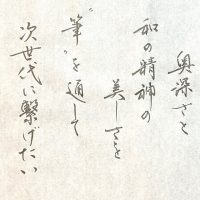 奥深さと
和の精神の
美しさを
“筆”を通して
次世代に繋げたい